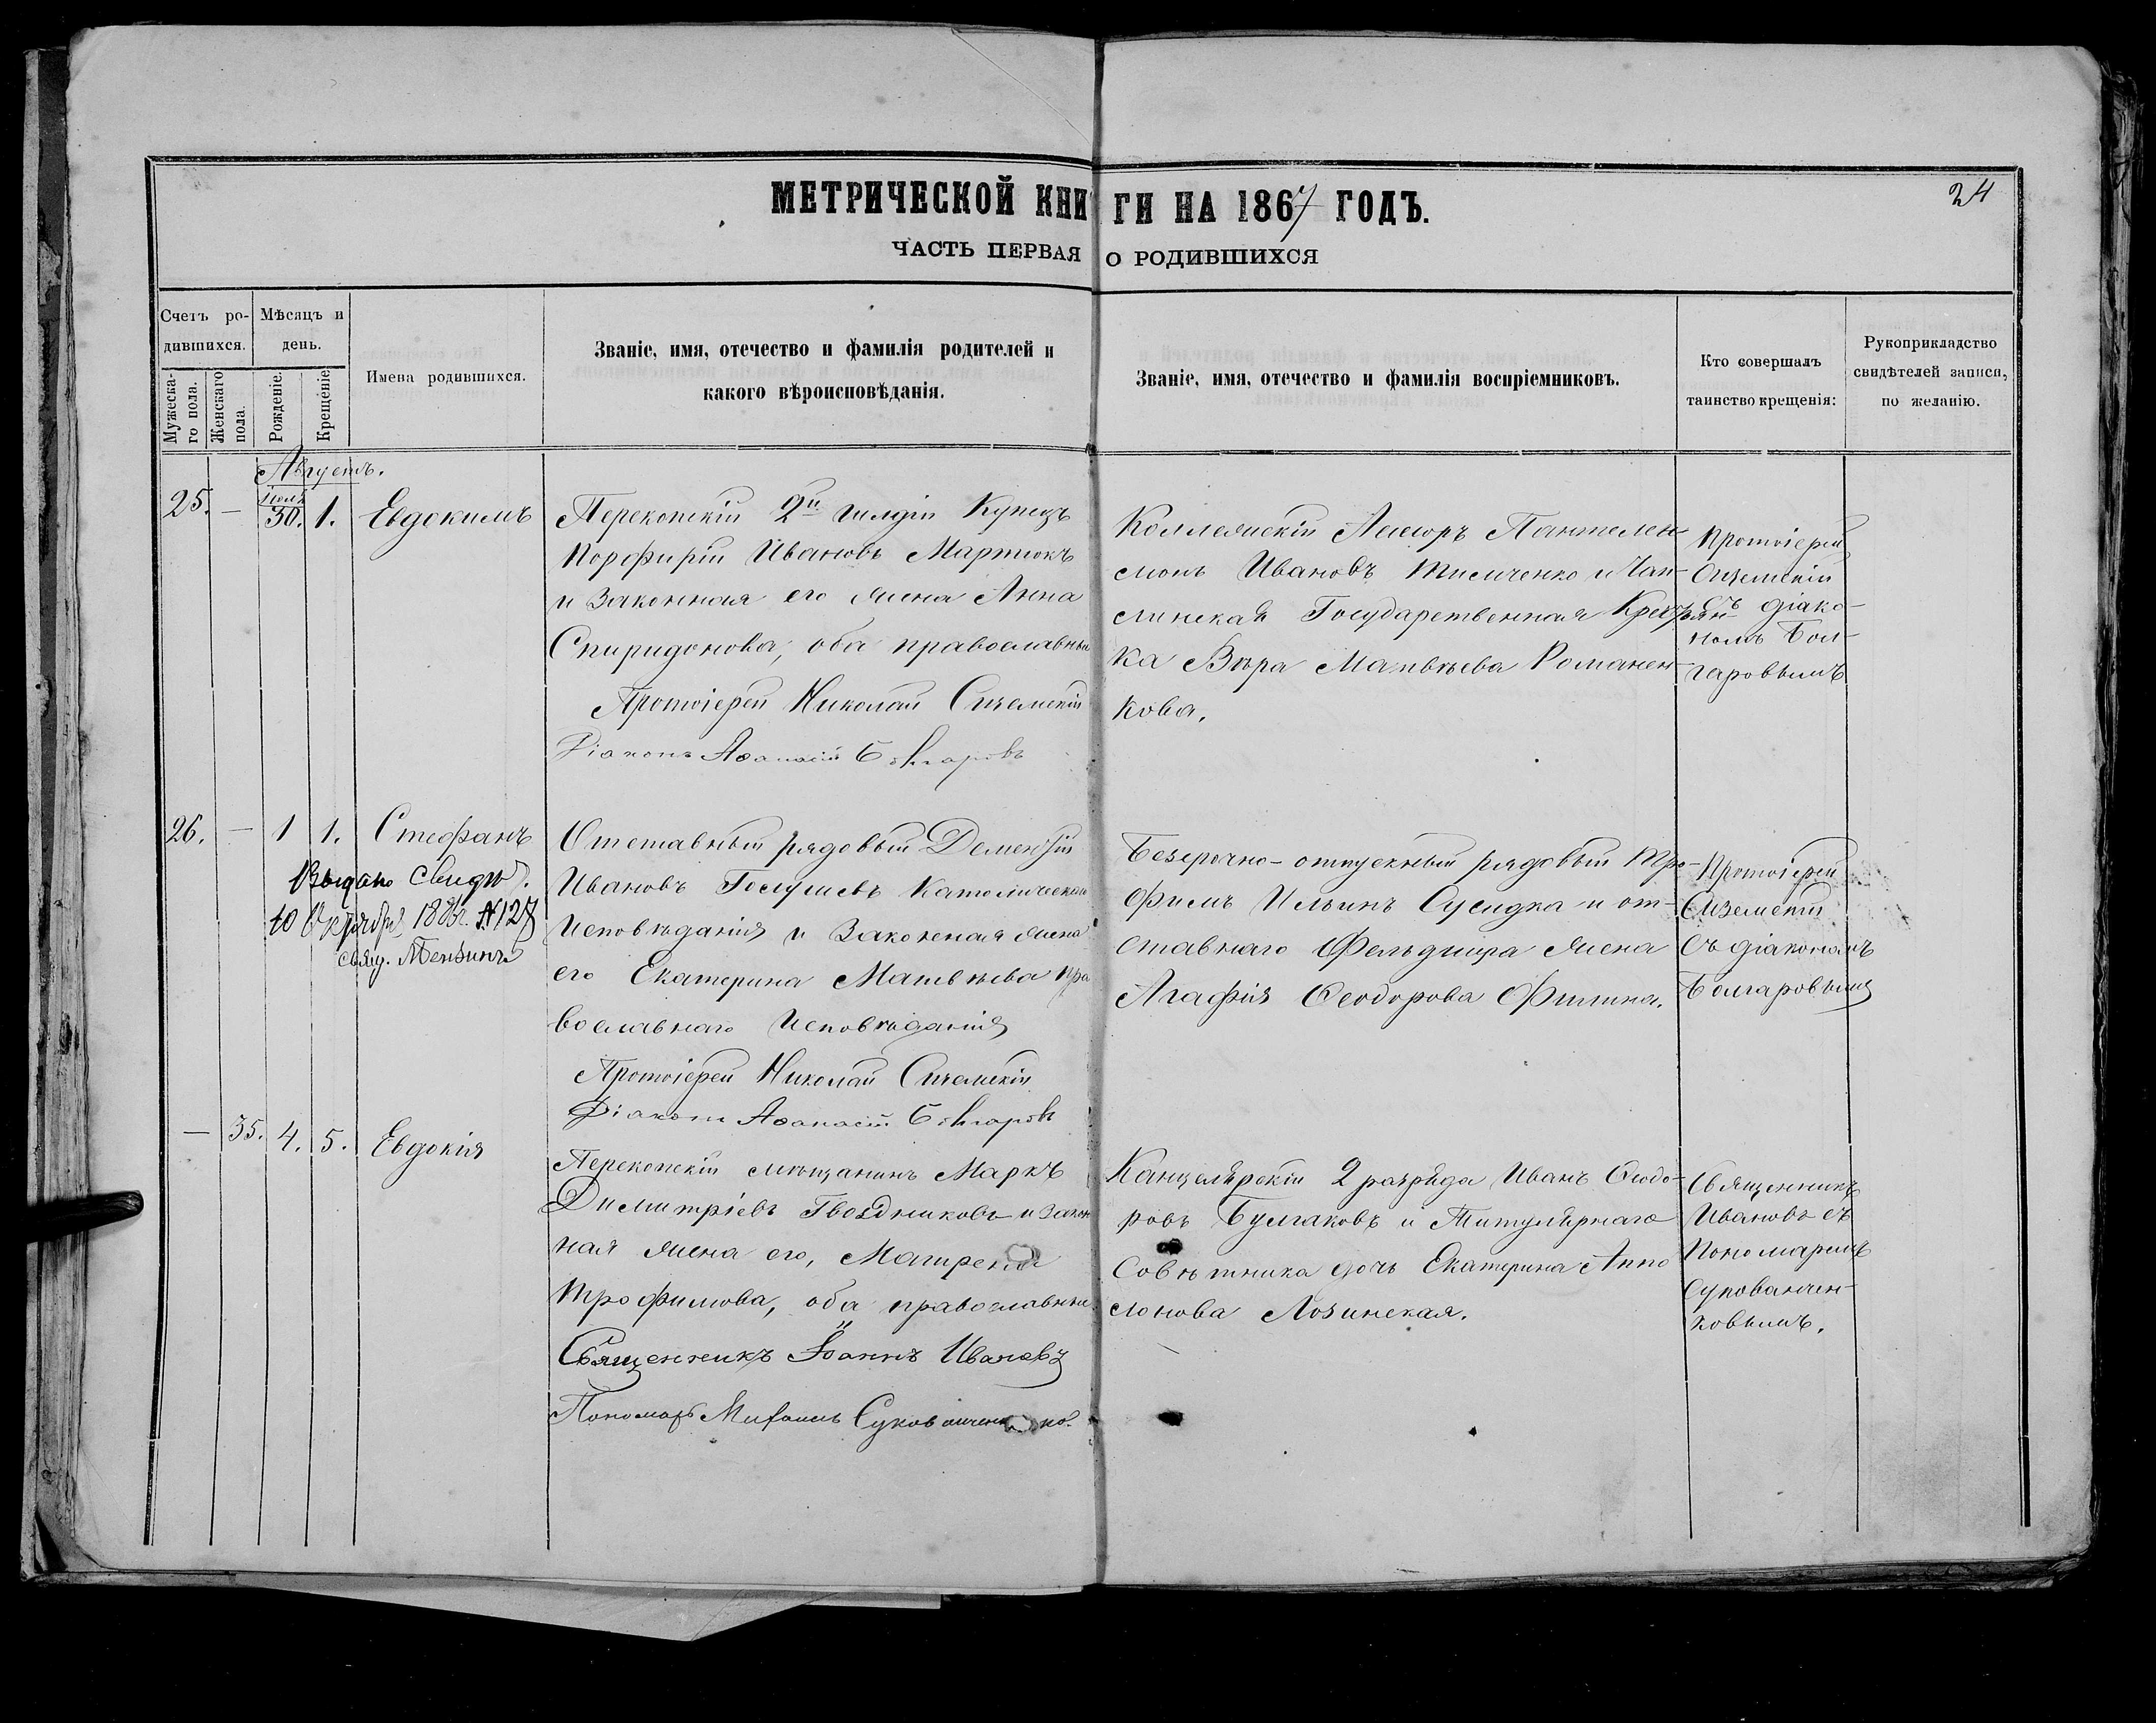 МЕТРИЧЕСКОЙ КНИГИ НА 1867 ГОДЪ.
24
ЧАСТЬ ПЕРВАЯ О РОДИВШИХСЯ
Счетъ ро-
дившихся.
Мужеска-
го пола.
Женскаго
пола.
Мѣсяцъ и
день.
Рожденіе.
Крещеніе
Имена родившихся.
Званіе, имя, отечество и фамилія родителей и
какого вѣроисповѣданія.
Званіе, имя, отечество и фамилія воспріемниковъ.
Кто совершалъ
таинство крещенія:
Рукоприкладство
свидѣтелей записи,
по желанію.
Августъ.
25. — Іюля 30. 1. Евдокимъ
Перекопскій 2й гилдіи Купецъ
Порфирій Ивановъ Мартюкъ
и Законная его жена Анна
Спиридонова, оба православныи
Протоіерей Николай
Діаконъ Аѳанасій Болгаровъ
Коллежскій Ассесоръ Пантелей-
монъ Ивановъ Тимченко и Чап-
линская Государственная Крестьян-
ка Вѣра Матвѣева Романен-
кова.
Протоіерей
съ діако-
номъ Бол-
гаровымъ
26. — 1 1. Стефанъ
Выдано Свидѣт.
10 Октября 188 г. № 127
свящ.
Отставный рядовый Дементій
Ивановъ Католическаго
Исповѣданія и Законная жена
его Екатерина Матвѣева пра
вославнаго Исповѣданія
Протоіерей Николай
Діаконъ Аѳанасій Болгаровъ
Безсрочно-отпускный рядовый Тро-
фимъ Ильинъ Сусидка и от-
ставнаго Фельдшра жена
Агафія Ѳеодорова Филина.
Протоіерей
съ діакономъ
Болгаровымъ
— 35. 4. 5. Евдокія
Перекопскій мѣщанинъ Маркъ
Димитріевъ Гвоздниковъ и закон
ная жена его, Матрена
Трофимова, оба православны.
Священникъ Іоаннъ Ивановъ
Пономарь Михаилъ
Канцелярскій 2 разряда Иванъ Ѳеодо-
ровъ Булгаковъ и Титулярнаго
Совѣтника дочь Екатерина Аппо
лонова Лозинская.
Священникъ
Ивановъ съ
Пономаремъ
Суковатчен-
ковымъ.